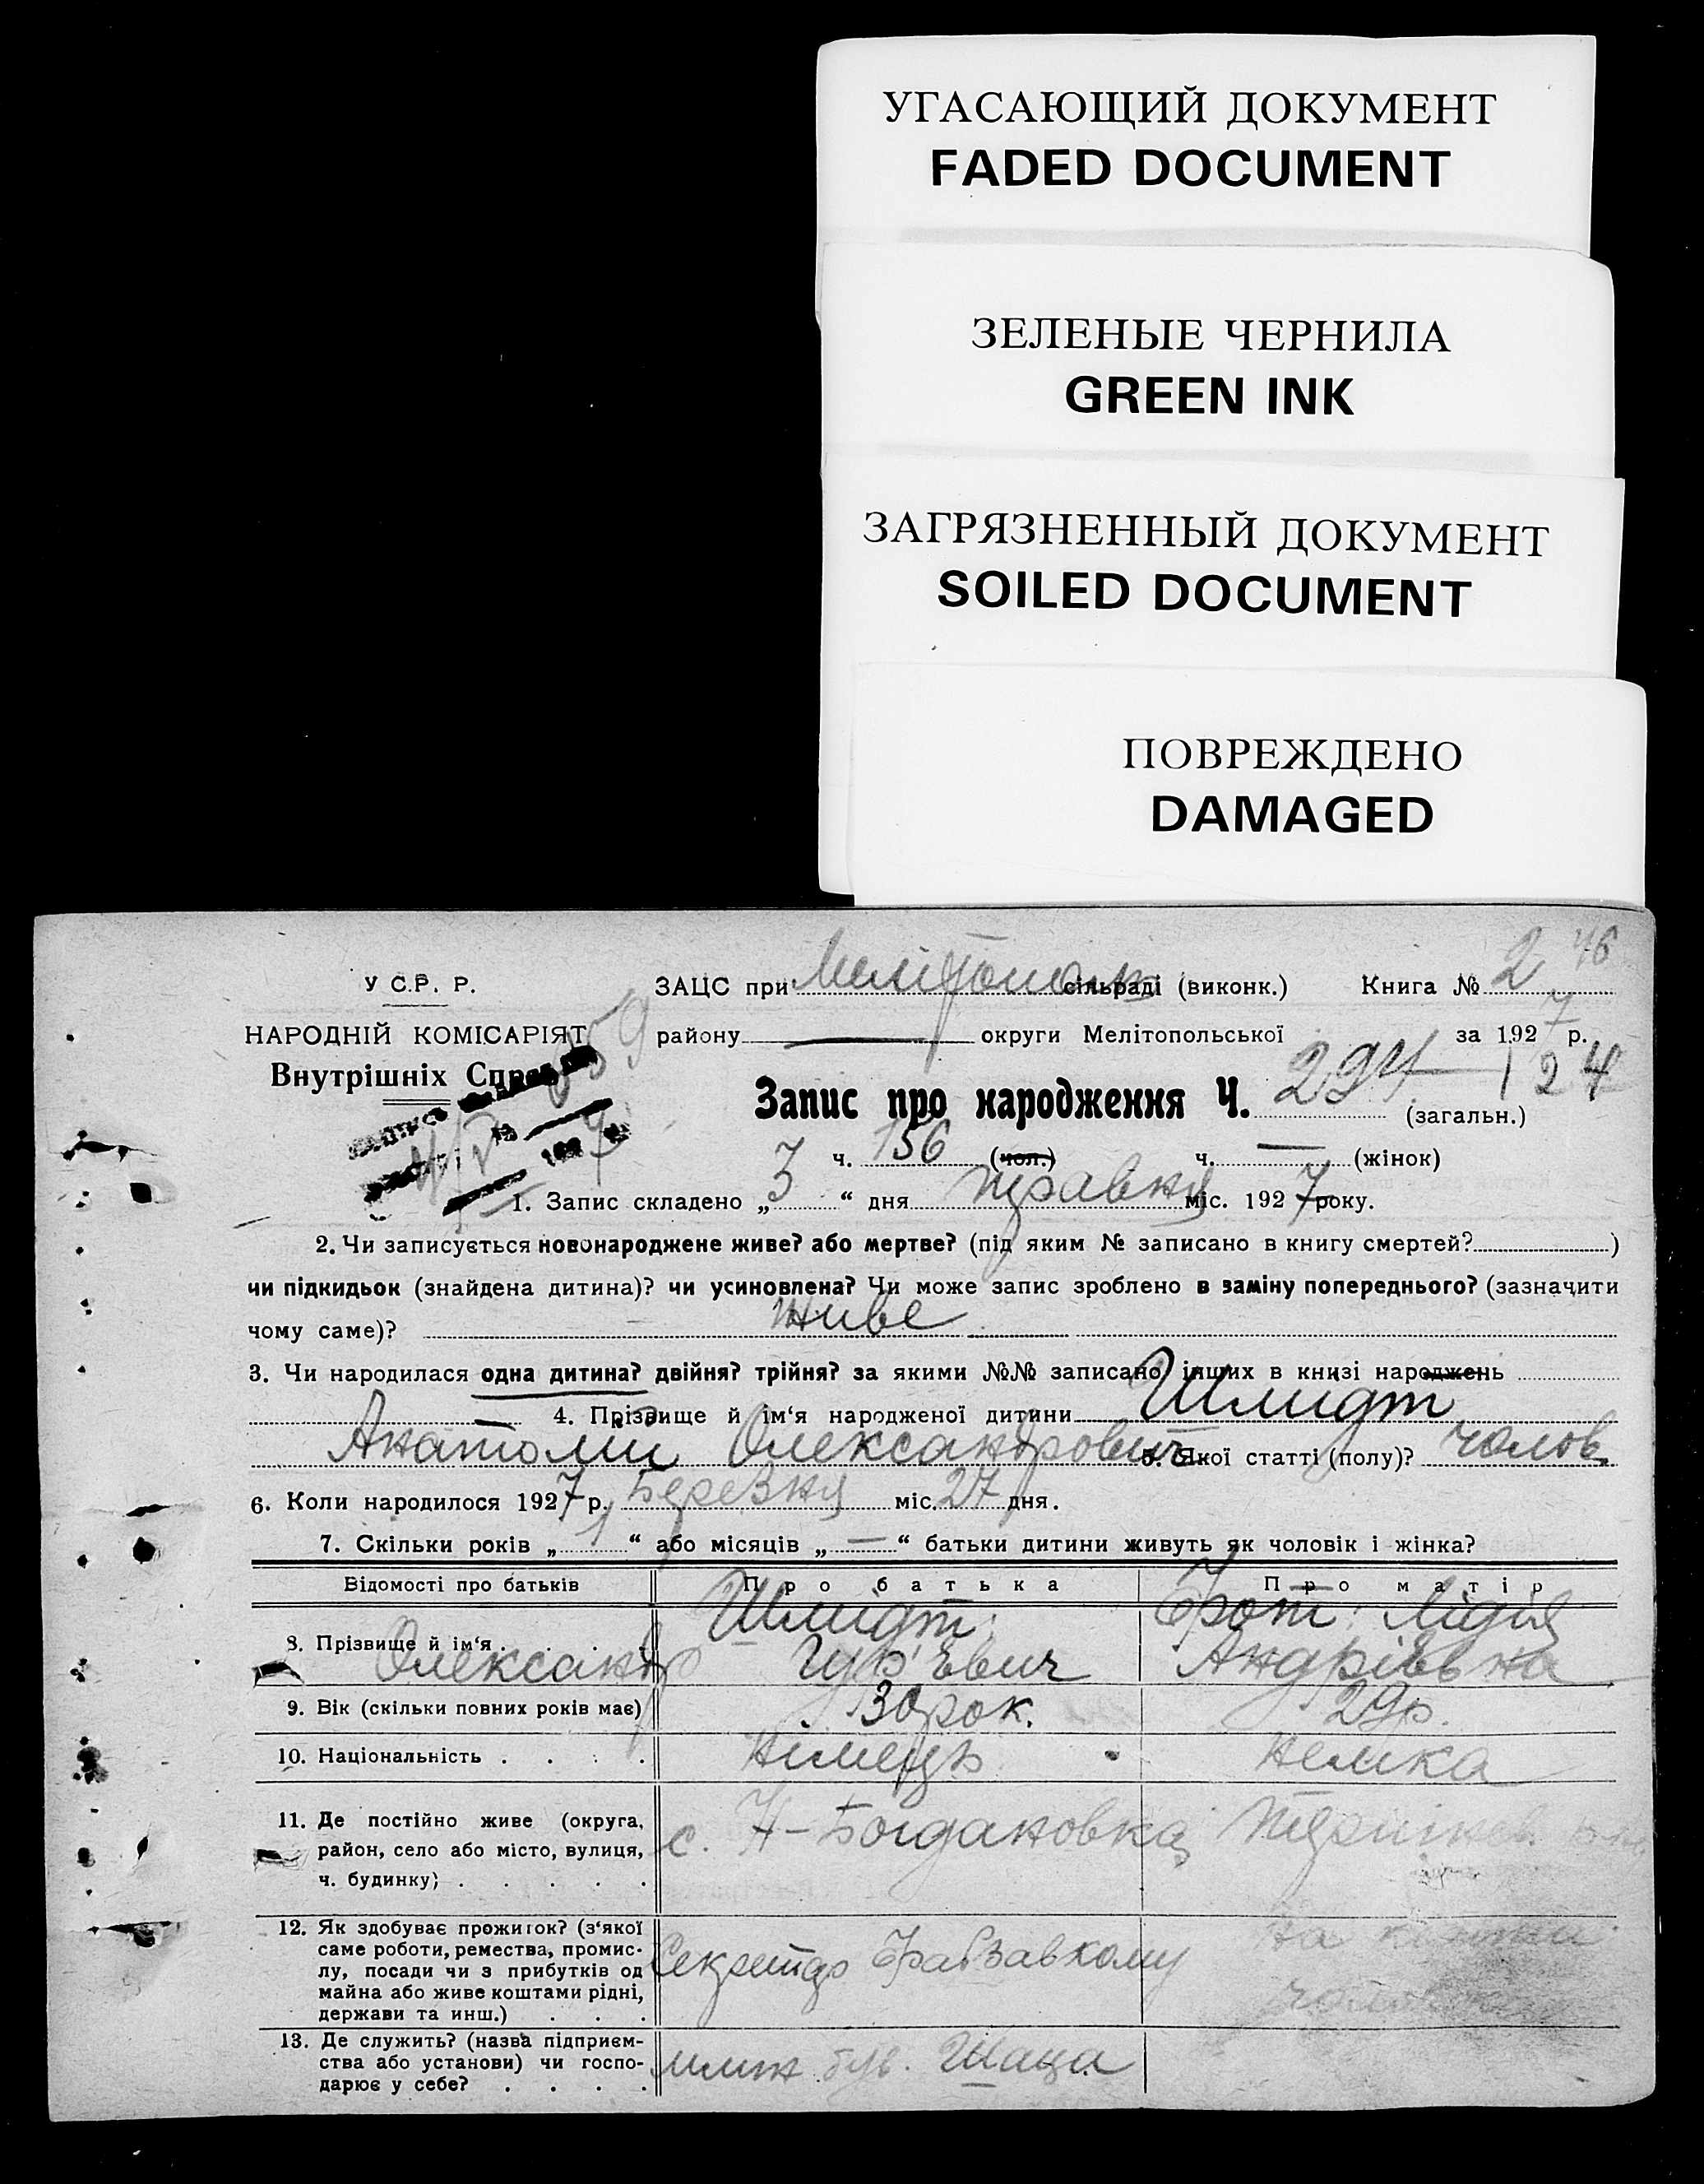 УГАСАЮЩИЙ ДОКУМЕНТ
FADED DOCUMENT
ЗЕЛЕНЫЕ ЧЕРНИЛА
GREEN INK
ЗАГРЯЗНЕННЫЙ ДОКУМЕНТ
SOILED DOCUMENT
ПОВРЕЖДЕНО
DAMAGED
46
У С.Р. Р. ЗАЦС при сільраді (виконк.) Книга № 2
НАРОДНІЙ КОМІСАРІЯТ 859 району округи Мелітопольської за 1927 р.
Внутрішніх Справ
Запис про народження Ч. 294 (загальн.) 124
ч. 156 (чол.) ч. — (жінок)
1. Запис складено „3“ дня травня міс. 1927 року.
2. Чи записується новонароджене живе? або мертве? (під яким № записано в книгу смертей? )
чи підкидьок (знайдена дитина)? чи усиновлена? Чи може запис зроблено в заміну попереднього? (зазначити
чому саме)? живе
3. Чи народилася одна дитина? двійня? трійня? за якими №№ записано інших в книзі народжень
— 4. Прізвище й ім‘я народженої дитини Шмидт
Анатолій Олександрович 5. Якої статті (полу)? чолов.
6. Коли народилося 1927 р. Березня міс. 27 дня.
7. Скільки років „1“ або місяців „—“ батьки дитини живуть як чоловік і жінка?
Відомості про батьків Про батька Про матір
8. Прізвище й ім‘я . . . . Шмідт Олександр Лідія Андріївна
9. Вік (скільки повних років має) 30 рок. 29 р.
10. Національність . . . . німець немка
11. Де постійно живе (округа, район, село або місто, вулиця, ч. будинку) . . . . . с. Н-Богдановка
12. Як здобуває прожиток? (з‘якої саме роботи, ремества, промислу, посади чи з прибутків од майна або живе коштами рідні, держави та инш.) . . . Секретар
13. Де служить? (назва підприємства або установи) чи господарює у себе? . . . . млин був. Шаца